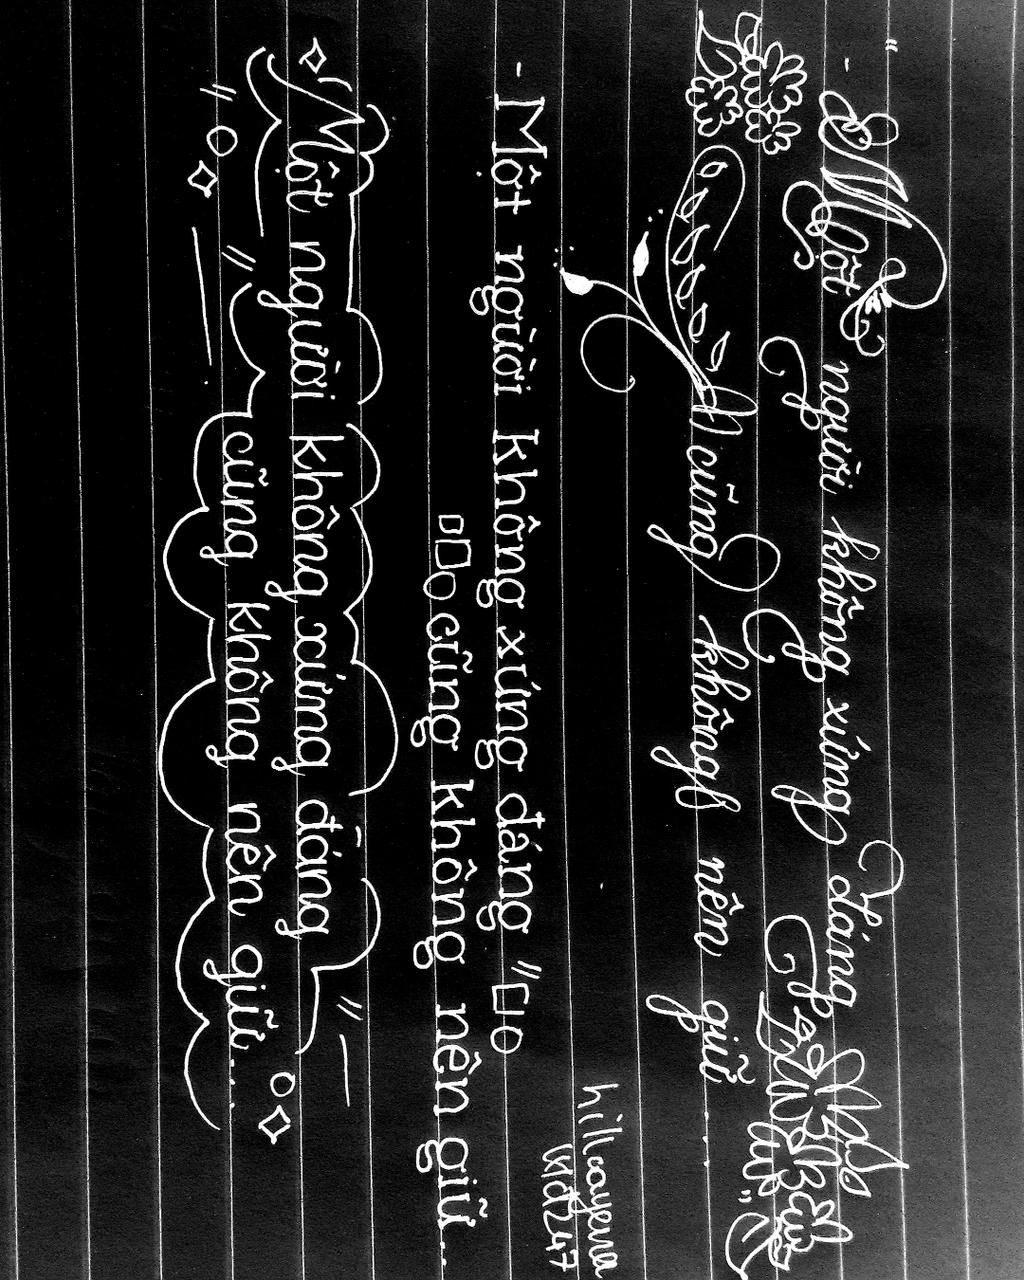 - Một người không xứng đáng
cũng không nên giữ....
- Một người không xứng đáng
cũng không nên giữ...
Một người không xứng đáng
cũng không nên giữ...